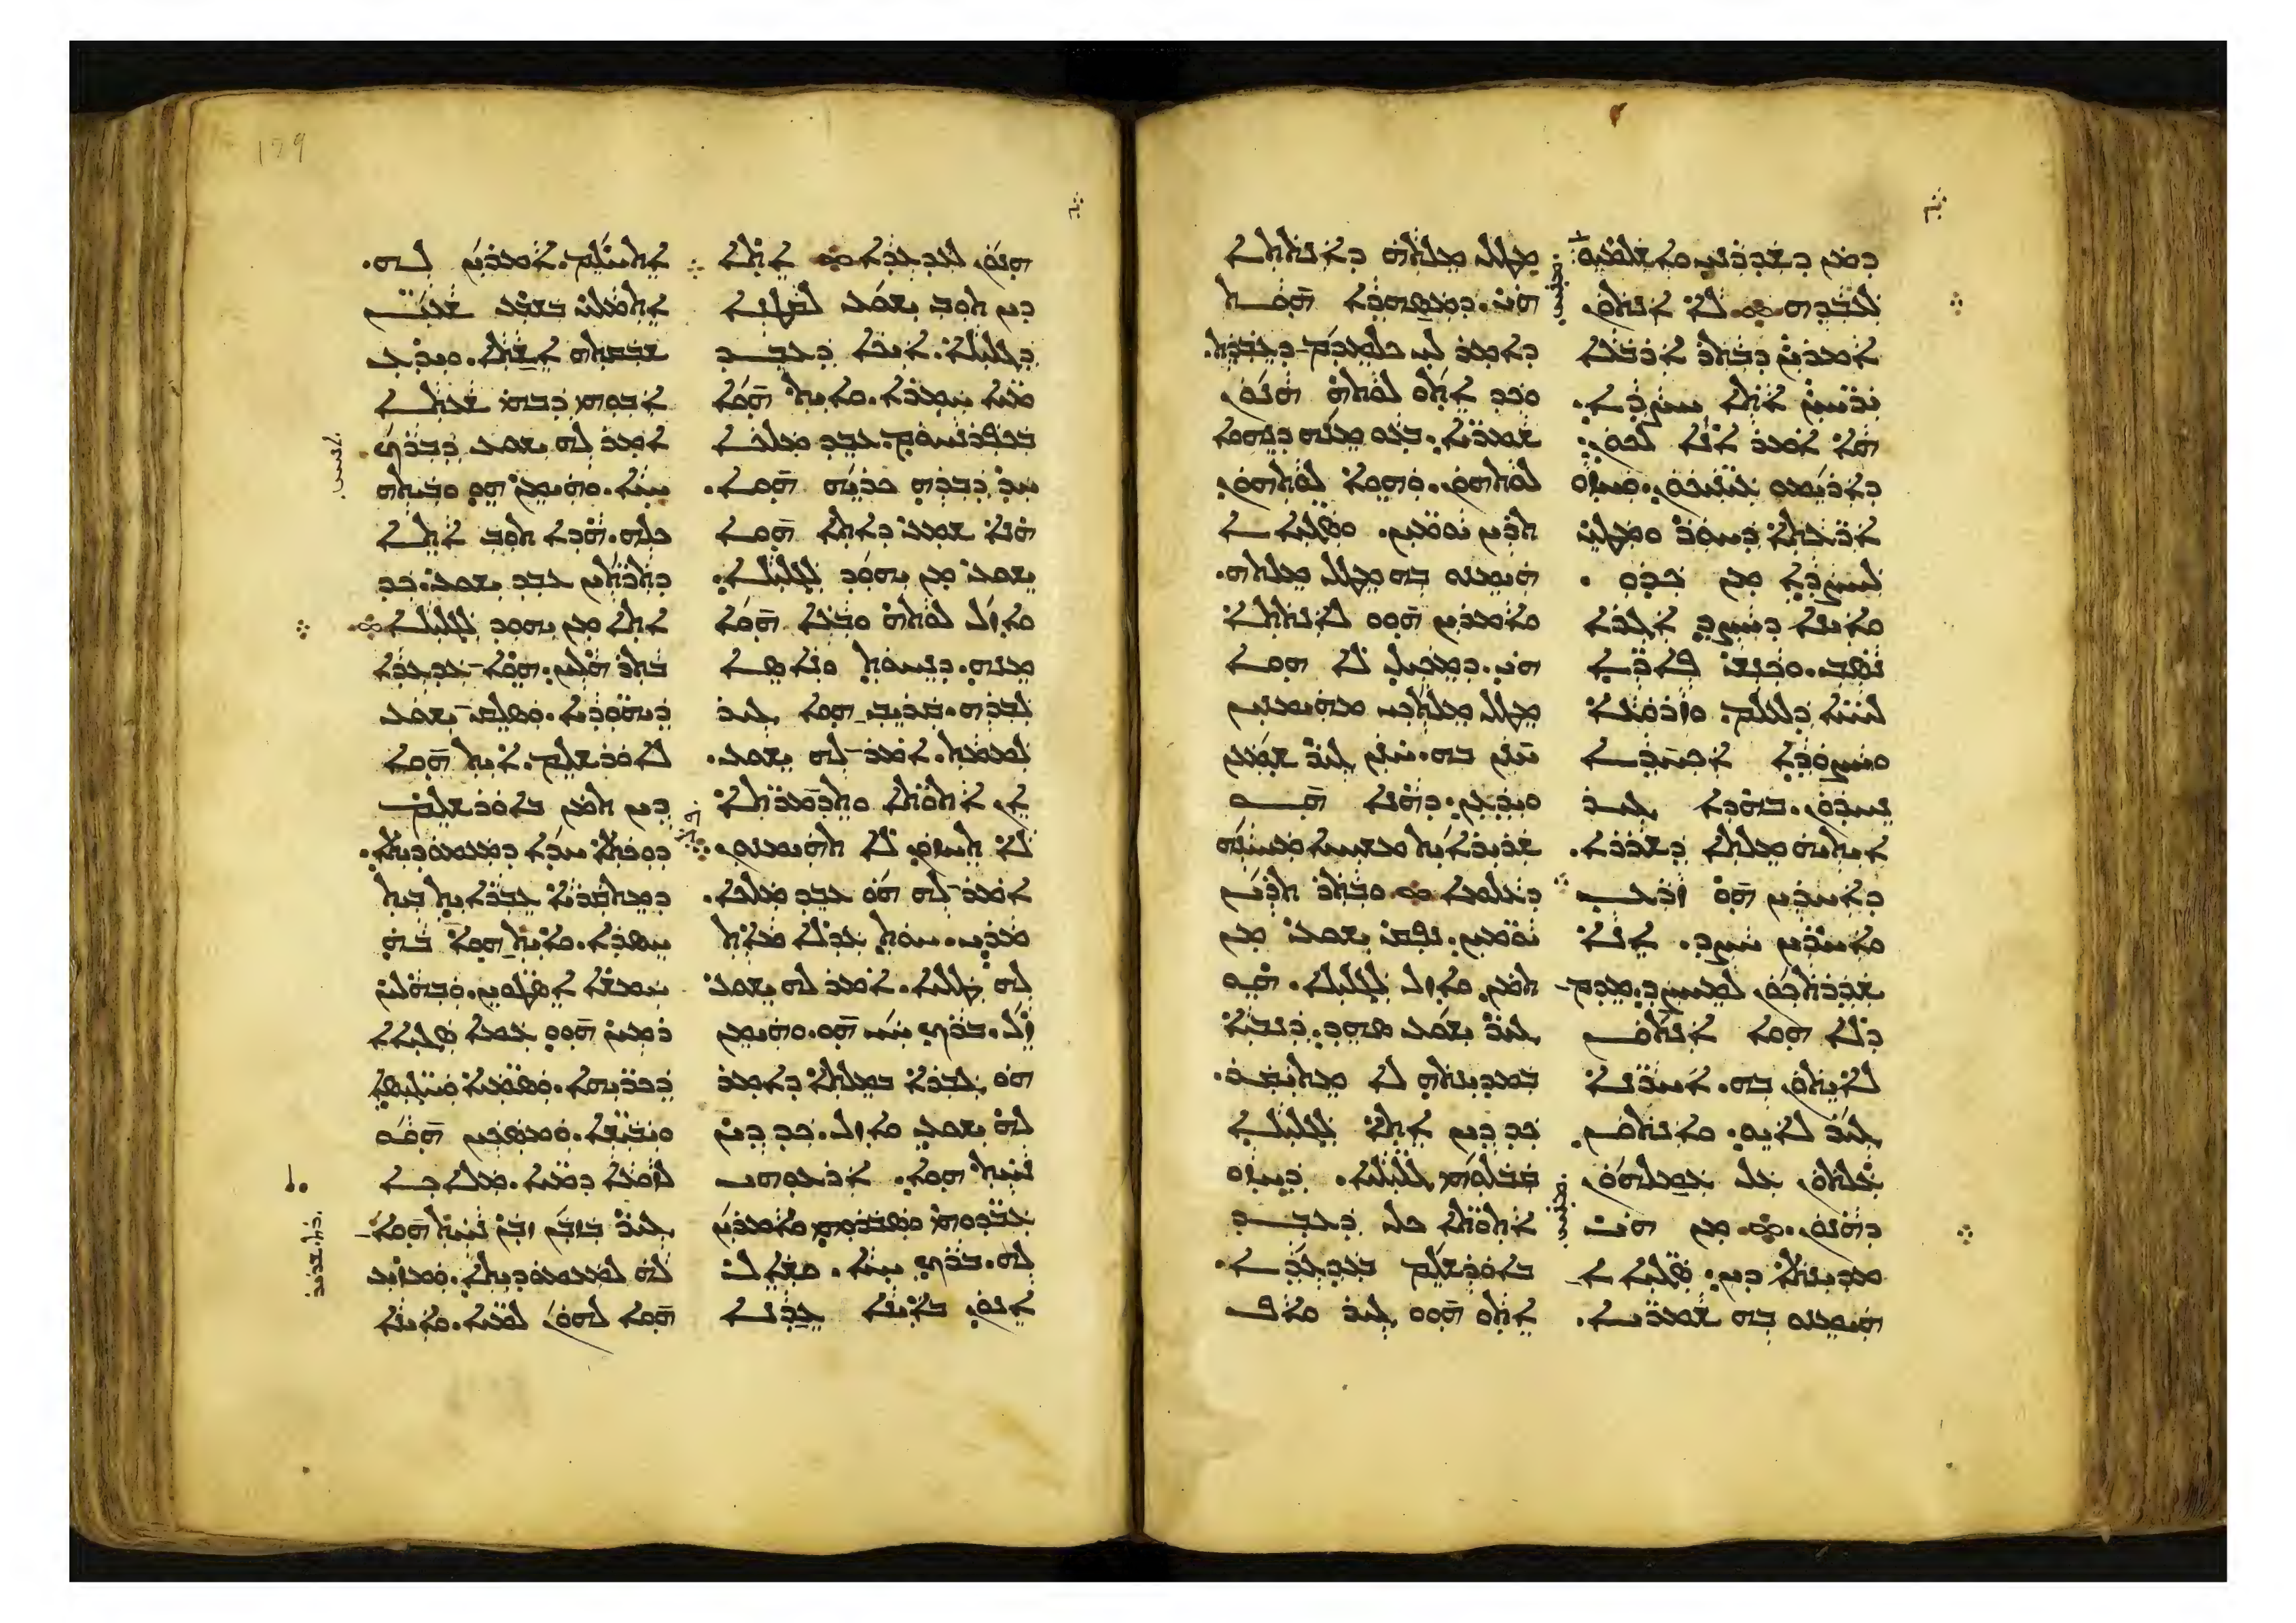 ܕܡܢ ܕܫܕܪܢܝ ܘܐܫܠܡܝܘܗܝ
ܠܥܒܕܗ ܠܐ ܐܢܬܘܢ
ܐܡܪܝܢ ܕܒܬܪ ܐܪܒܥܐ
ܝܪܚܝܢ ܐܬܐ ܚܨܕܐ.
ܗܐ ܐܡܪ ܐܢܐ ܠܟܘܢ.
ܕܐܪܝܡܘ ܥܝܢܝܟܘܢ. ܘܚܙܘ
ܐܪܥܬܐ ܕܚܘܪ ܘܡܛܝ
ܠܚܨܕܐ ܡܢ ܟܕܘ.
ܘܐܝܢܐ ܕܚܨܕ ܐܓܪܐ
ܢܣܒ. ܘܟܢܫ ܦܐܪܐ
ܠܚܝܐ ܕܠܥܠܡ. ܘܙܪܘܥܐ
ܘܚܨܘܕܐ ܐܟܚܕܐ
ܢܚܕܘܢ. ܒܗܕܐ ܓܝܪ
ܐܝܬܝܗ ܡܠܬܐ ܕܫܪܪܐ.
ܕܐܚܪܝܢ ܗܘ ܙܪܥ
ܘܐܚܪܝܢ ܚܨܕ. ܐܢܐ
ܫܕܪܬܟܘܢ ܠܡܚܨܕ ܡܕܡ
ܕܠܐ ܗܘܐ ܐܢܬܘܢ
ܠܐܝܬܘܢ ܒܗ. ܐܚܪܢܐ
ܓܝܪ ܠܐܝܘ. ܘܐܢܬܘܢ
ܥܠܬܘܢ ܥܠ ܥܡܠܗܘܢ
ܕܗܢܘܢ. ܡܢ ܗܝ
ܡܕܝܢܬܐ ܕܝܢ. ܣܓܝܐܐ
ܗܝܡܢܘ ܒܗ ܫܡܪܝܐ.
ܡܛܠ ܡܠܬܗ ܕܐܢܬܬܐ
ܗܝ. ܕܡܣܗܕܐ ܗܘܬ
ܕܐܡܪ ܠܝ ܟܠܡܕܡ ܕܥܒܕܬ.
ܘܟܕ ܐܬܘ ܠܘܬܗ ܗܢܘܢ
ܫܡܪܝܐ. ܒܥܘ ܡܢܗ ܕܢܗܘܐ
ܠܘܬܗܘܢ. ܘܗܘܐ ܠܘܬܗܘܢ
ܬܪܝܢ ܝܘܡܝܢ. ܘܣܓܝܐܐ
ܗܝܡܢܘ ܒܗ ܡܛܠ ܡܠܬܗ.
ܘܐܡܪܝܢ ܗܘܘ ܠܐܢܬܬܐ
ܗܝ. ܕܡܟܝܠ ܠܐ ܗܘܐ
ܡܛܠ ܡܠܬܟܝ ܡܗܝܡܢܝܢ
ܚܢܢ ܒܗ. ܚܢܢ ܓܝܪ ܫܡܥܢ
ܘܝܕܥܢ. ܕܗܢܐ ܗܘ
ܫܪܝܪܐܝܬ ܡܫܝܚܐ ܡܚܝܢܗ
ܕܥܠܡܐ ܘܒܬܪ ܬܪܝܢ
ܝܘܡܝܢ. ܢܦܩ ܝܫܘܥ ܡܢ
ܬܡܢ ܘܐܙܠ ܠܓܠܝܠܐ. ܗܘ
ܓܝܪ ܝܫܘܥ ܣܗܕ. ܕܢܒܝܐ
ܒܡܕܝܢܬܗ ܠܐ ܡܬܝܩܪ.
ܟܕ ܕܝܢ ܐܬܐ ܠܓܠܝܠܐ
ܩܒܠܘܗܝ ܓܠܝܠܝܐ. ܕܚܙܘ
ܐܬܘܬܐ ܟܠ ܕܥܒܕ
ܒܐܘܪܫܠܡ ܒܥܕܥܕܐ.
ܐܬܘ ܗܘܘ ܓܝܪ ܘܐܦ
ܗܢܘܢ ܠܥܕܥܕܐ ܐܬܐ
ܕܝܢ ܬܘܒ ܝܫܘܥ ܠܩܛܢܐ
ܕܓܠܝܠܐ. ܐܝܟܐ ܕܥܒܕ
ܡܝܐ ܚܡܪܐ. ܘܐܝܬ ܗܘܐ
ܒܟܦܪܢܚܘܡ ܥܒܕ ܡܠܟܐ
ܚܕ ܕܒܪܗ ܟܪܝܗ ܗܘܐ.
ܗܢܐ ܫܡܥ ܕܐܬܐ ܗܘܐ
ܝܫܘܥ ܡܢ ܝܗܘܕ ܠܓܠܝܠܐ.
ܘܐܙܠ ܠܘܬܗ ܘܒܥܐ ܗܘܐ
ܡܢܗ. ܕܢܚܘܬ ܘܢܐܣܐ
ܠܒܪܗ. ܩܪܝܒ ܗܘܐ ܓܝܪ
ܠܡܡܬ. ܐܡܪ ܠܗ ܝܫܘܥ.
ܐܢ ܐܬܘܬܐ ܘܬܕܡܪܬܐ
ܠܐ ܬܚܙܘܢ ܠܐ ܬܗܝܡܢܘܢ
ܐܡܪ ܠܗ ܗܘ ܥܒܕ ܡܠܟܐ.
ܡܪܝ. ܚܘܬ ܥܕܠܐ ܡܐܬ
ܠܗ ܛܠܝܐ. ܐܡܪ ܠܗ ܝܫܘܥ
ܙܠ. ܒܪܟ ܚܝ ܗܘ. ܘܗܝܡܢ
ܗܘ ܓܒܪܐ ܒܡܠܬܐ ܕܐܡܪ
ܠܗ ܝܫܘܥ ܘܐܙܠ. ܟܕ ܕܝܢ
ܢܚܬ ܗܘܐ. ܐܪܥܘܗܝ
ܥܒܕܘܗܝ ܘܣܒܪܘܗܝ ܘܐܡܪܝܢ
ܠܗ. ܒܪܟ ܚܝܐ. ܘܫܐܠ
ܐܢܘܢ ܒܐܝܢܐ ܥܕܢܐ
ܐܬܚܠܡ. ܐܡܪܝܢ ܠܗ.
ܐܬܡܠܝ ܒܫܒܥ ܫܥܝܢ
ܫܒܩܬܗ ܐܫܬܐ. ܘܝܕܥ
ܐܒܘܗܝ ܕܒܗܝ ܫܥܬܐ
ܐܡܪ ܠܗ ܝܫܘܥ ܕܒܪܟ
ܚܝܐ. ܘܗܝܡܢ ܗܘ ܘܒܝܬܗ
ܟܠܗ. ܗܕܐ ܬܘܒ ܐܬܐ
ܕܬܪܬܝܢ ܥܒܕ ܝܫܘܥ. ܟܕ
ܐܬܐ ܡܢ ܝܗܘܕ ܠܓܠܝܠܐ
ܒܬܪ ܗܠܝܢ. ܗܘܐ ܥܕܥܕܐ
ܕܝܗܘܕܝܐ. ܘܣܠܩ ܝܫܘܥ
ܠܐܘܪܫܠܡ. ܐܝܬ ܗܘܐ
ܕܝܢ ܬܡܢ ܒܐܘܪܫܠܡ
ܕܘܟܬܐ ܚܕܐ ܕܡܥܡܘܕܝܬܐ.
ܕܡܬܐܡܪܐ ܥܒܪܐܝܬ ܒܝܬ
ܚܣܕܐ. ܘܐܝܬ ܗܘܐ ܒܗ
ܚܡܫܐ ܐܣܛܘܝܢ. ܘܒܗܠܝܢ
ܪܡܝܢ ܗܘܘ ܥܡܐ ܣܓܝܐܐ
ܕܟܪܝܗܐ. ܘܣܡܝܐ ܘܚܓܝܣܐ
ܘܝܒܝܫܐ. ܘܡܣܟܝܢ ܗܘܘ
ܠܙܘܥܐ ܕܡܝܐ. ܡܠܐܟܐ
ܓܝܪ ܒܙܒܢ ܙܒܢ ܢܚܬ ܗܘܐ
ܠܗ ܠܡܥܡܘܕܝܬܐ. ܘܡܙܝܥ
ܗܘܐ ܠܗܘܢ ܠܡܝܐ. ܘܐܝܢܐ
179